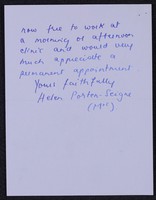 now free to work at
a morning or afternoon
clinic and would very
much appreciate a
permanent appointment
Yours faithfully
Helen
(Mrs)